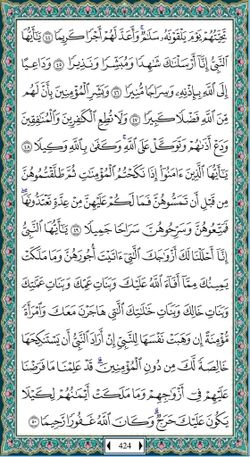 تَحِيَّتُهُمْ يَوْمَ يَلْقَوْنَهُۥ سَلَٰمٌ ۚ وَأَعَدَّ لَهُمْ أَجْرًا كَرِيمًا ٤٤ يَٰٓأَيُّهَا
ٱلنَّبِىُّ إِنَّآ أَرْسَلْنَٰكَ شَٰهِدًا وَمُبَشِّرًا وَنَذِيرًا ٤٥ وَدَاعِيًا
إِلَى ٱللَّهِ بِإِذْنِهِۦ وَسِرَاجًا مُّنِيرًا ٤٦ وَبَشِّرِ ٱلْمُؤْمِنِينَ بِأَنَّ لَهُم
مِّنَ ٱللَّهِ فَضْلًا كَبِيرًا ٤٧ وَلَا تُطِعِ ٱلْكَٰفِرِينَ وَٱلْمُنَٰفِقِينَ
وَدَعْ أَذَىٰهُمْ وَتَوَكَّلْ عَلَى ٱللَّهِ ۚ وَكَفَىٰ بِٱللَّهِ وَكِيلًا ٤٨
يَٰٓأَيُّهَا ٱلَّذِينَ ءَامَنُوٓا۟ إِذَا نَكَحْتُمُ ٱلْمُؤْمِنَٰتِ ثُمَّ طَلَّقْتُمُوهُنَّ
مِن قَبْلِ أَن تَمَسُّوهُنَّ فَمَا لَكُمْ عَلَيْهِنَّ مِنْ عِدَّةٍ تَعْتَدُّونَهَا ۖ
فَمَتِّعُوهُنَّ وَسَرِّحُوهُنَّ سَرَاحًا جَمِيلًا ٤٩ يَٰٓأَيُّهَا ٱلنَّبِىُّ
إِنَّآ أَحْلَلْنَا لَكَ أَزْوَٰجَكَ ٱلَّٰتِىٓ ءَاتَيْتَ أُجُورَهُنَّ وَمَا مَلَكَتْ
يَمِينُكَ مِمَّآ أَفَآءَ ٱللَّهُ عَلَيْكَ وَبَنَاتِ عَمِّكَ وَبَنَاتِ عَمَّٰتِكَ
وَبَنَاتِ خَالِكَ وَبَنَاتِ خَٰلَٰتِكَ ٱلَّٰتِى هَاجَرْنَ مَعَكَ وَٱمْرَأَةً
مُّؤْمِنَةً إِن وَهَبَتْ نَفْسَهَا لِلنَّبِىِّ إِنْ أَرَادَ ٱلنَّبِىُّ أَن يَسْتَنكِحَهَا
خَالِصَةً لَّكَ مِن دُونِ ٱلْمُؤْمِنِينَ ۗ قَدْ عَلِمْنَا مَا فَرَضْنَا
عَلَيْهِمْ فِىٓ أَزْوَٰجِهِمْ وَمَا مَلَكَتْ أَيْمَٰنُهُمْ لِكَيْلَا
يَكُونَ عَلَيْكَ حَرَجٌ ۗ وَكَانَ ٱللَّهُ غَفُورًا رَّحِيمًا ٥٠
424